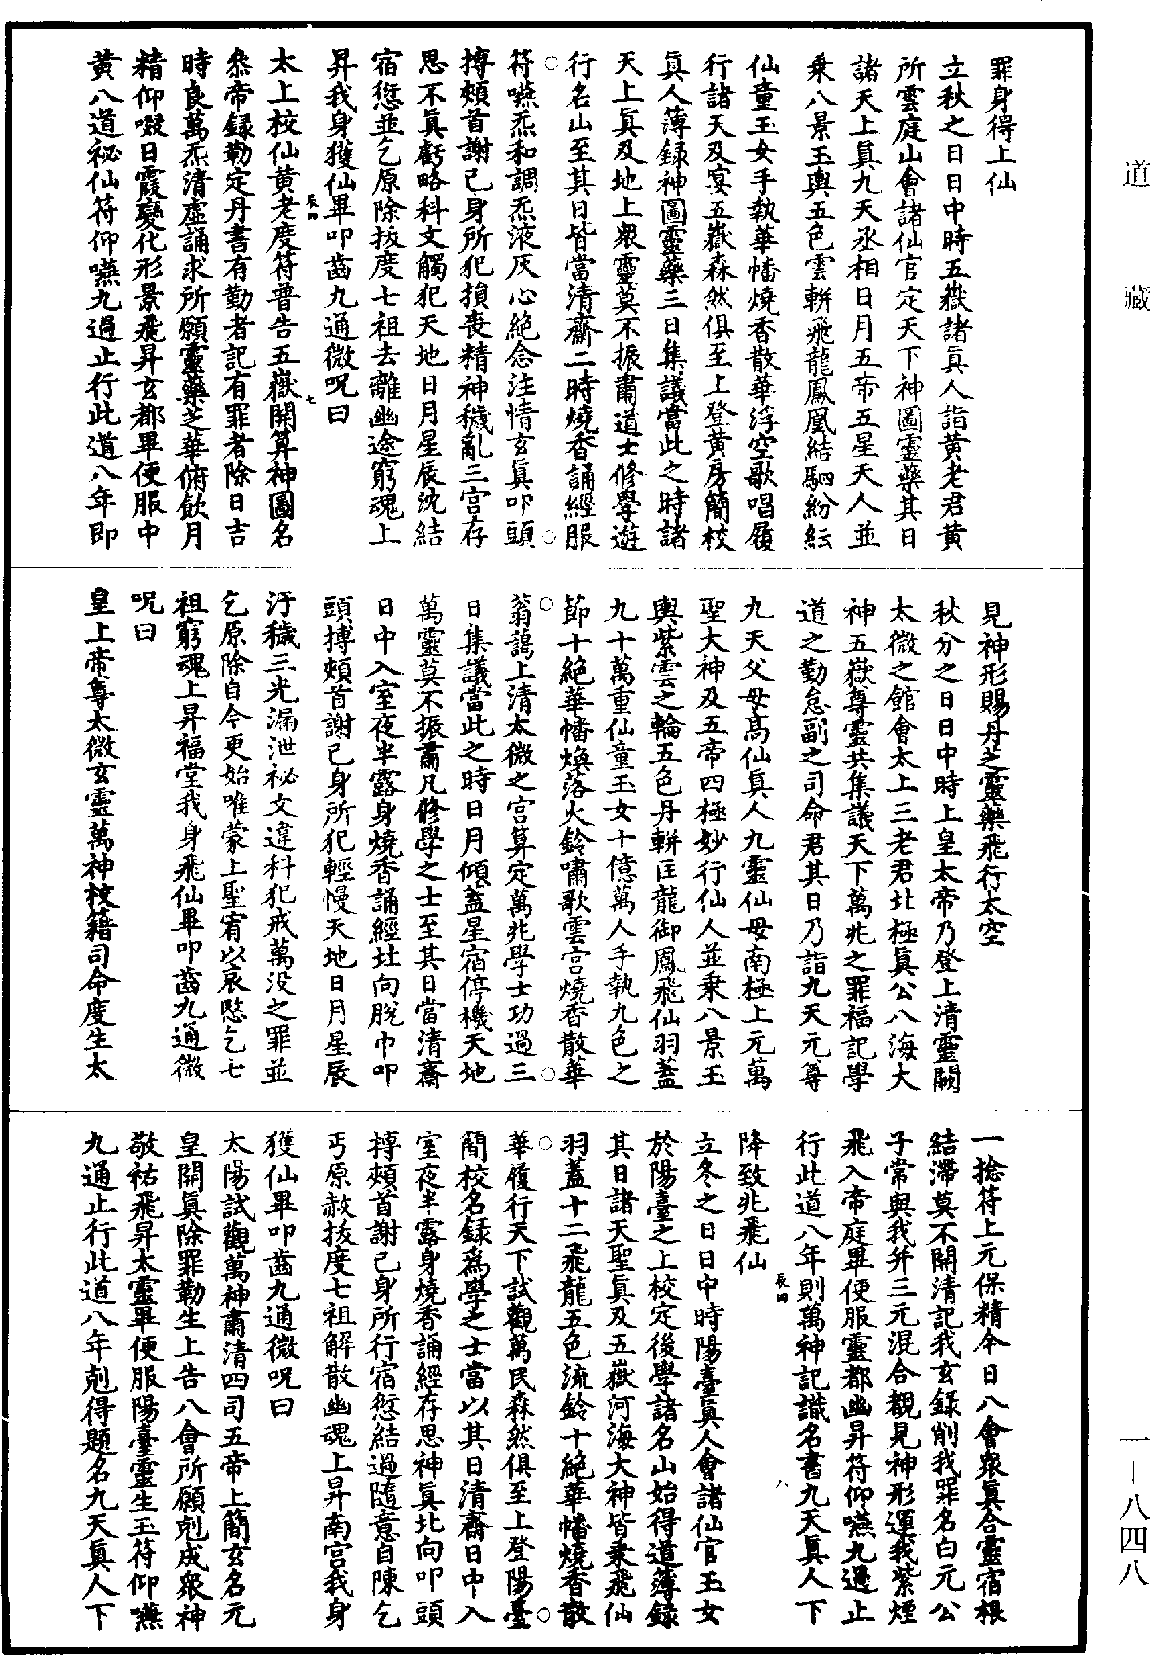 道藏
罪身得上仙
立秋之日日中時五嶽諸真人詣黃老君黃
所雲庭山會諸仙官定天下神圖靈藥其日
諸天上真九天丞相日月五帝五星天人並
乘八景玉輿五色雲軿飛龍鳳凰結駟紛紜
仙童玉女手執華幡燒香散華浮空歌唱履
行諸天及宴五嶽森然俱至上登黃房簡校
真人薄錄神圖靈藥三日集議當此之時諸
天上真及地上眾靈莫不振肅道士修學遊
行名山至其日皆當清齋二時燒香誦經服
符嚥炁和調炁液灰心絕念注情玄真叩頭
搏頰首謝已身所犯損喪精神穢亂三宮存
思不真虧略科文觸犯天地日月星辰沈結
宿愆並乞原除拔度七祖去離幽途窮魂上
昇我身獲仙畢叩齒九通微呪曰
辰四 七
太上校仙黃老度符普告五嶽開算神圖名
叅帝錄勒定丹書有勤者記有罪者除日吉
時良萬炁清虛誦求所願靈藥芝華俯飲月
精仰啜日霞變化形景飛昇玄都畢便服中
黃八道祕仙符仰嚥九過止行此道八年即
見神形賜丹芝靈藥飛行太空
秋分之日日中時上皇太帝乃登上清靈闕
太微之館會太上三老君北極真公八海大
神五嶽尊靈共集議天下萬兆之罪福記學
道之勤怠副之司命君其日乃詣九天元尊
九天父母高仙真人九靈仙母南極上元萬
聖大神及五帝四極妙行仙人並乘八景玉
輿紫雲之輪五色丹軿匡龍御鳳飛仙羽蓋
九十萬重仙童玉女十億萬人手執九色之
節十絕華幡煥落火鈴嘯歌雲宮燒香散華
蓊藹上清太微之宮算定萬兆學士功過三
日集議當此之時日月傾蓋星宿停機天地
萬靈莫不振肅凡修學之士至其日當清齋
日中入室夜半露身燒香誦經北向脫巾叩
頭搏頰首謝已身所犯輕慢天地日月星辰
汙穢三光漏泄祕文違科犯戒萬沒之罪並
乞原除自今更始唯蒙上聖宥以哀愍乞七
祖窮魂上昇福堂我身飛仙畢叩齒九通微
呪曰
皇上帝尊太微玄靈萬神校籍司命度生太
一捻符上元保精今日八會眾真合靈宿根
結滯莫不開清記我玄錄削我罪名白元公
子常與我并三元混合觀見神形運我紫煙
飛入帝庭畢便服靈都幽昇符仰嚥九過止
行此道八年則萬神記識名書九天真人下
降致兆飛仙
辰四 八
立冬之日日中時陽臺真人會諸仙官玉女
於陽臺之上校定後學諸名山始得道薄錄
其日諸天聖真及五嶽河海大神皆乘飛仙
羽蓋十二飛龍五色流鈴十絕華幡燒香散
華履行天下試觀萬民森然俱至上登陽臺
簡校名錄為學之士當以其日清齋日中入
室夜半露身燒香誦經存思神真北向叩頭
搏頰首謝已身所行宿愆結過隨意自陳乞
丐原赦拔度七祖解散幽魂上昇南宮我身
獲仙畢叩齒九通微呪曰
太陽試觀萬神肅清四司五帝上簡玄名元
皇開真除罪勒生上告八會所願剋成眾神
敬祐飛昇太靈畢便服陽臺靈生玉符仰嚥
九通止行此道八年剋得題名九天真人下
一—八四八